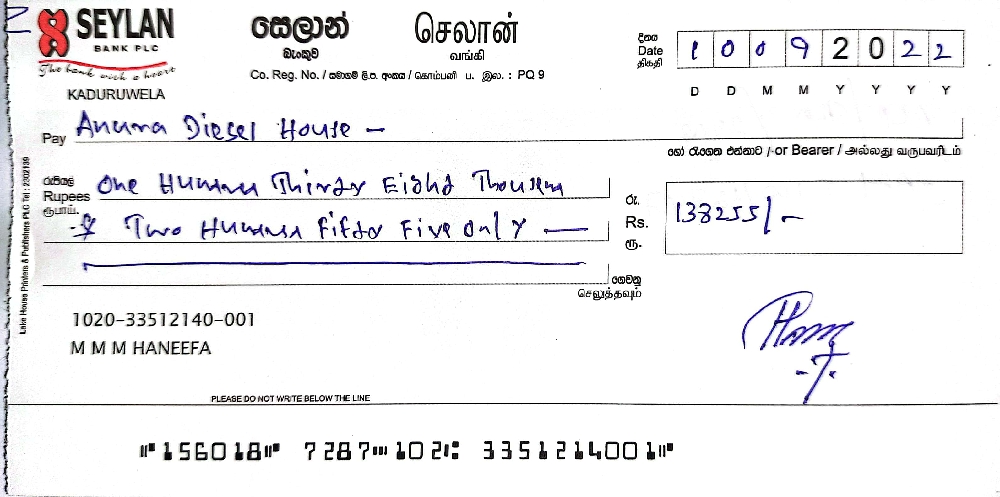 SEYLAN
BANK PLC
The bank with a heart
KADURUWELA
සෙලාන්
බැංකුව
செலான்
வங்கி
Co. Reg. No. / සමාගම් ලි.ප. අංකය / கொம்பனி ப. இல. : PQ 9
දිනය
Date
திகதி
1 0 0 9 2 0 2 2
D D M M Y Y Y Y
Pay Anura Diesel House -
හෝ රැගෙන එන්නාට / or Bearer / அல்லது வருபவரிடம்
රුපියල්
Rupees
ரூபாய்.
One Hundred Thirty Eight Thousand
& Two Hundred Fifty Five only
රු.
Rs.
ரூ.
138255/-
ගෙවනු
செலுத்தவும்
Lake House Printers & Publishers PLC Tel : 2302139
1020-33512140-001
M M M HANEEFA
PLEASE DO NOT WRITE BELOW THE LINE
⑈156018⑈ 7287⑉102⑆ 3351214001⑈